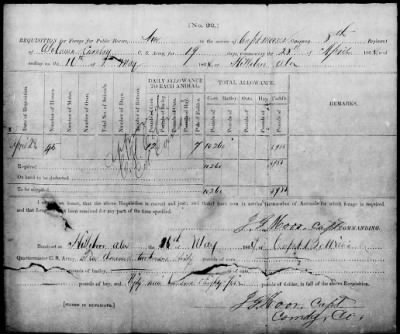 (No. 22.)
REQUISITION for Forage for Public Horses, in the service of Capt Moore's Company 8th Regiment
of Alabama Cavalry C. S. Army, for 19 days, commencing the 28th of April 186
ending on the 16th of May 186 , at Alа
DAILY ALLOWANCE TO EACH ANIMAL. TOTAL ALLOWANCE.
Date of Requisition. Number of Horses. Number of Mules. Number of Oxen. Total No. of Animals. Number of Days. Pounds of Corn. Pounds of Barley. Pounds of Oats. Pounds of Hay. Pounds of Fodder. Corn Barley Oats Hay Fodder REMARKS.
April 28 45 12 7 10260 5985
Required 10260 5985
On hand to be deducted,
To be supplied, 10260 5985
I CERTIFY, on honor, that the above Requisition is correct and just; and that I have now in service the number of Animals for which forage is required, and that forage has not been received for any part of the time specified.
J. G. Moore Capt COMMANDING.
Received at Ala the 16th of May 186 , of Capt
Quartermaster C. S. Army, Ten thousand two hundred sixty pounds of corn,
pounds of barley, pounds of oats,
pounds of hay, and Fifty nine hundred Eighty five pounds of fodder, in full of the above Requisition.
[SIGNED IN DUPLICATE.]
J G Moore Capt
Comdg Co